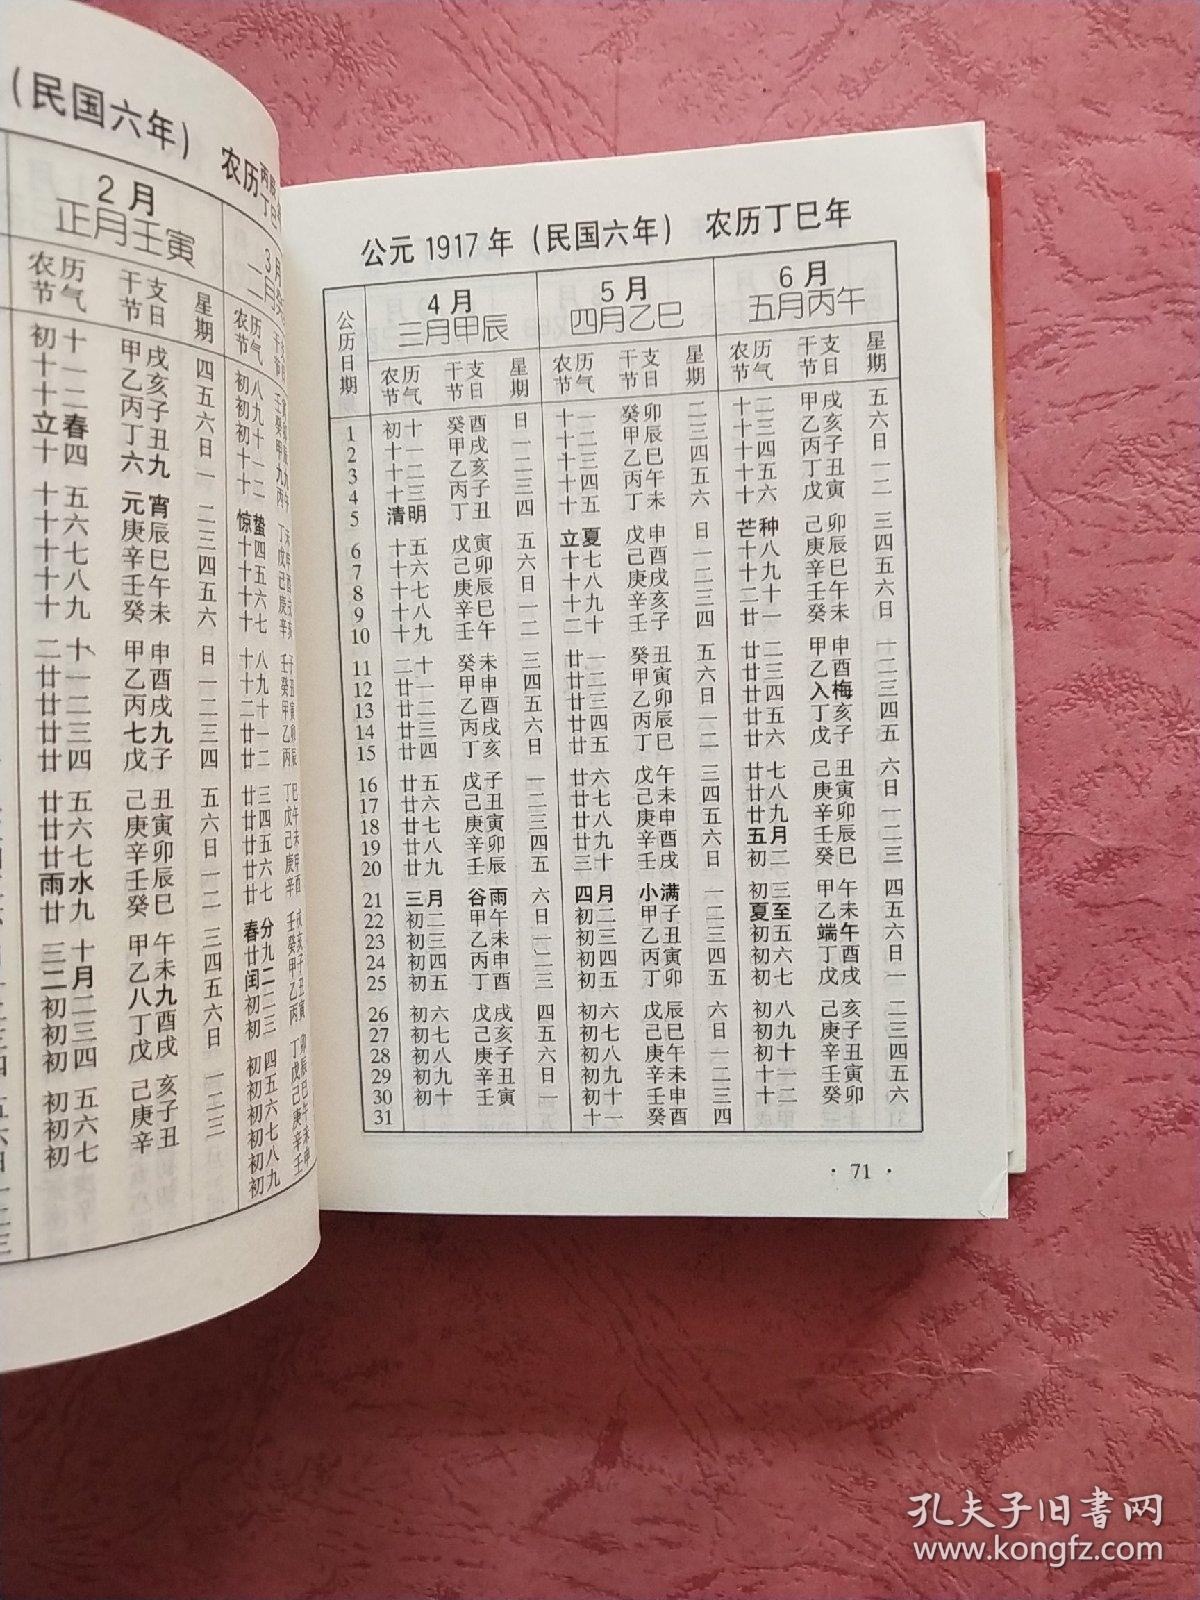 (民国六年) 农历
2月
正月壬寅
农历 干支 星期
节气 节日
初十 甲戌 四
十一 乙亥 五
十二 丙子 六
立春 丁丑 日
十四 六九 一
十五 元宵 二
十六 庚辰 三
十七 辛巳 四
十八 壬午 五
十九 癸未 六
二十 甲申 日
廿一 乙酉 一
廿二 丙戌 二
廿三 七九 三
廿四 戊子 四
廿五 己丑 五
廿六 庚寅 六
廿七 辛卯 日
雨水 壬辰 一
廿九 癸巳 二
三十 甲午 三
二月 乙未 四
初二 八九 五
初三 丁酉 六
初四 戊戌 日
初五 己亥 一
初六 庚子 二
初七 辛丑 三
公元1917年(民国六年) 农历丁巳年
公历日期 4月 5月 6月
三月甲辰 四月乙巳 五月丙午
农历 干支 星期 农历 干支 星期 农历 干支 星期
节气 节日 节气 节日 节气 节日
1 初十 癸酉 日 十一 癸卯 二 十二 甲戌 五
2 十一 甲戌 一 十二 甲辰 三 十三 乙亥 六
3 十二 乙亥 二 十三 乙巳 四 十四 丙子 日
4 十三 丙子 三 十四 丙午 五 十五 丁丑 一
5 清明 丁丑 四 十五 丁未 六 十六 戊寅 二
6 十五 戊寅 五 立夏 戊申 日 芒种 己卯 三
7 十六 己卯 六 十七 己酉 一 十八 庚辰 四
8 十七 庚辰 日 十八 庚戌 二 十九 辛巳 五
9 十八 辛巳 一 十九 辛亥 三 二十 壬午 六
10 十九 壬午 二 二十 壬子 四 廿一 癸未 日
11 二十 癸未 三 廿一 癸丑 五 廿二 甲申 一
12 廿一 甲申 四 廿二 甲寅 六 廿三 乙酉 二
13 廿二 乙酉 五 廿三 乙卯 日 廿四 入梅 三
14 廿三 丙戌 六 廿四 丙辰 一 廿五 丁亥 四
15 廿四 丁亥 日 廿五 丁巳 二 廿六 戊子 五
16 廿五 戊子 一 廿六 戊午 三 廿七 己丑 六
17 廿六 己丑 二 廿七 己未 四 廿八 庚寅 日
18 廿七 庚寅 三 廿八 庚申 五 廿九 辛卯 一
19 廿八 辛卯 四 廿九 辛酉 六 五月 壬辰 二
20 廿九 壬辰 五 三十 壬戌 日 初二 癸巳 三
21 三月 谷雨 六 四月 小满 一 初三 甲午 四
22 初二 甲午 日 初二 甲子 二 夏至 乙未 五
23 初三 乙未 一 初三 乙丑 三 初五 端午 六
24 初四 丙申 二 初四 丙寅 四 初六 丁酉 日
25 初五 丁酉 三 初五 丁卯 五 初七 戊戌 一
26 初六 戊戌 四 初六 戊辰 六 初八 己亥 二
27 初七 己亥 五 初七 己巳 日 初九 庚子 三
28 初八 庚子 六 初八 庚午 一 初十 辛丑 四
29 初九 辛丑 日 初九 辛未 二 十一 壬寅 五
30 初十 壬寅 一 初十 壬申 三 十二 癸卯 六
31 十一 癸酉 四
· 71 ·
孔夫子旧书网
www.kongfz.com